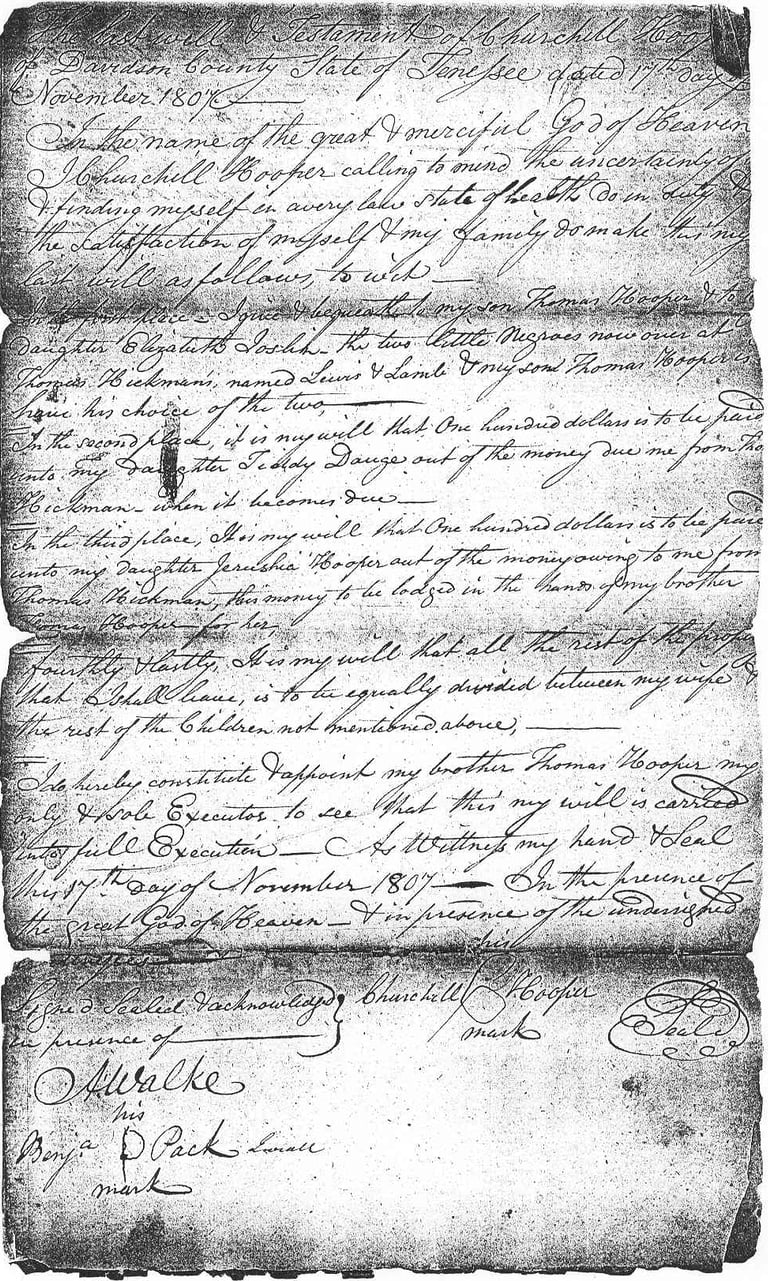 The last will & Testament of Churchill Hoop
of Davidson County State of Tenessee dated 17th day of
November 1807
In the name of the great & merciful God of Heaven
I Churchill Hooper calling to mind the uncertainty of
& finding myself in a very law state of health do in duty &
the Satisfaction of myself & my family do make this my
last will as follows, to wit —
In the first place — I give & bequeath to my son Thomas Hooper & to
daughter Elizabeth Joslin — the two little Negroes now over at
Thomas Hickman's, named Lewis & Lamb & my son Thomas Hooper is
have his choice of the two, —
In the second place, it is my will that One hundred dollars is to be paid
unto my daughter Teddy Dauge out of the money due me from Tho
Hickman — when it becomes due —
In the third place, It is my will that One hundred dollars is to be paid
unto my daughter Jerushia Hooper out of the money owing to me from
Thomas Hickman, this money to be lodged in the hands of my brother
Thomas Hooper for her,
fourthly & lastly, It is my will that all the rest of the prope
that I shall leave, is to be equally divided between my wife &
the rest of the Children not mentioned above, —
I do hereby constitute & appoint my brother Thomas Hooper my
only & sole Executor to see that this my will is carried
into full Execution — As Wittness my hand & Seal
this 17th Day of November 1807 — In the presence of
the great God of Heaven — & in presence of the undersigned
his
Signed Sealed & acknowledged } Churchill Hooper Seal
in presence of — mark
A Walke
his
Benja Pack Jurat
mark